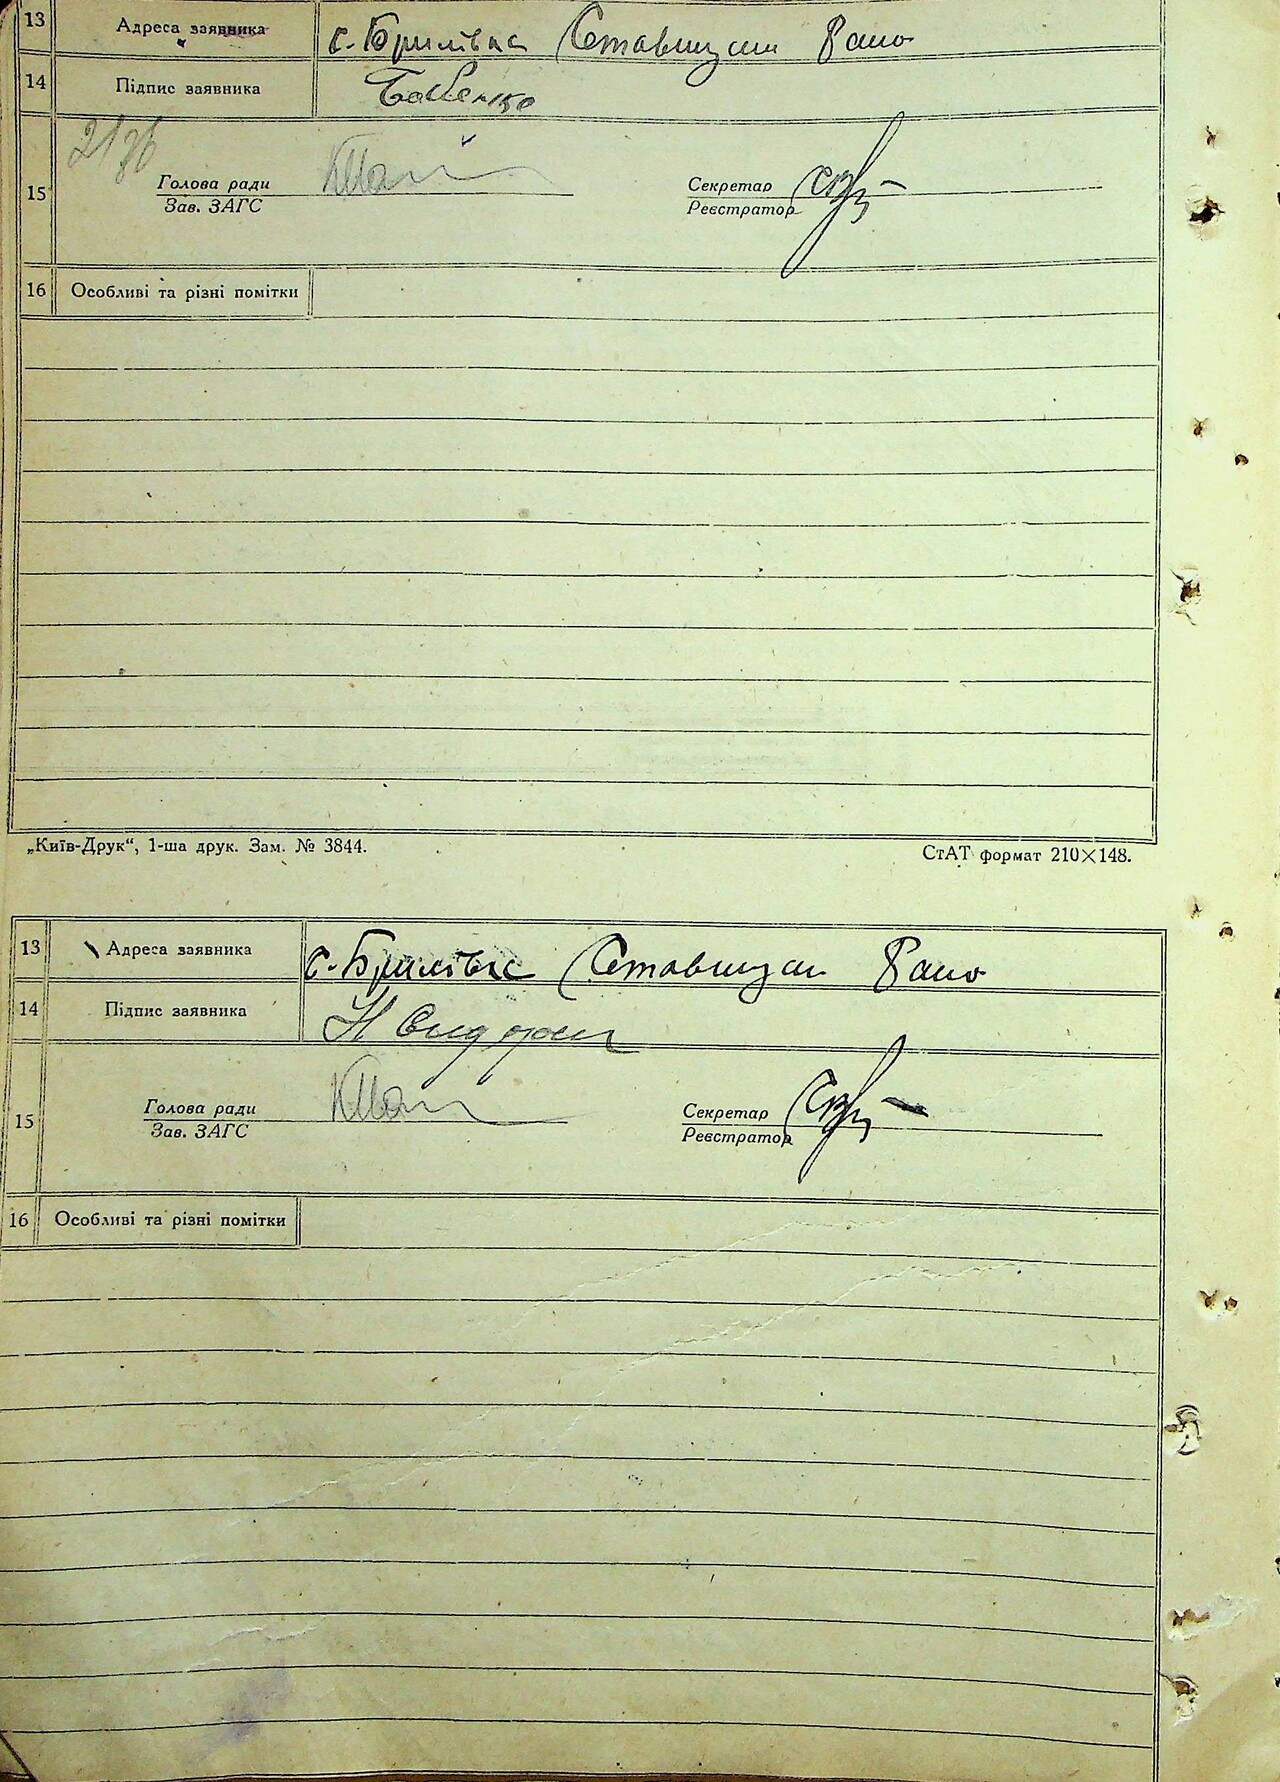 13 Адреса заявника с. Брилівка Ставищан Району
14 Підпис заявника Бабенко
15 Голова ради Секретар
Зав. ЗАГС Реєстратор
16 Особливі та різні помітки
„Київ-Друк“, 1-ша друк. Зам. № 3844. СтАТ формат 210×148.
13 Адреса заявника с. Брилівка Ставищан Району
14 Підпис заявника
15 Голова ради Секретар
Зав. ЗАГС Реєстратор
16 Особливі та різні помітки